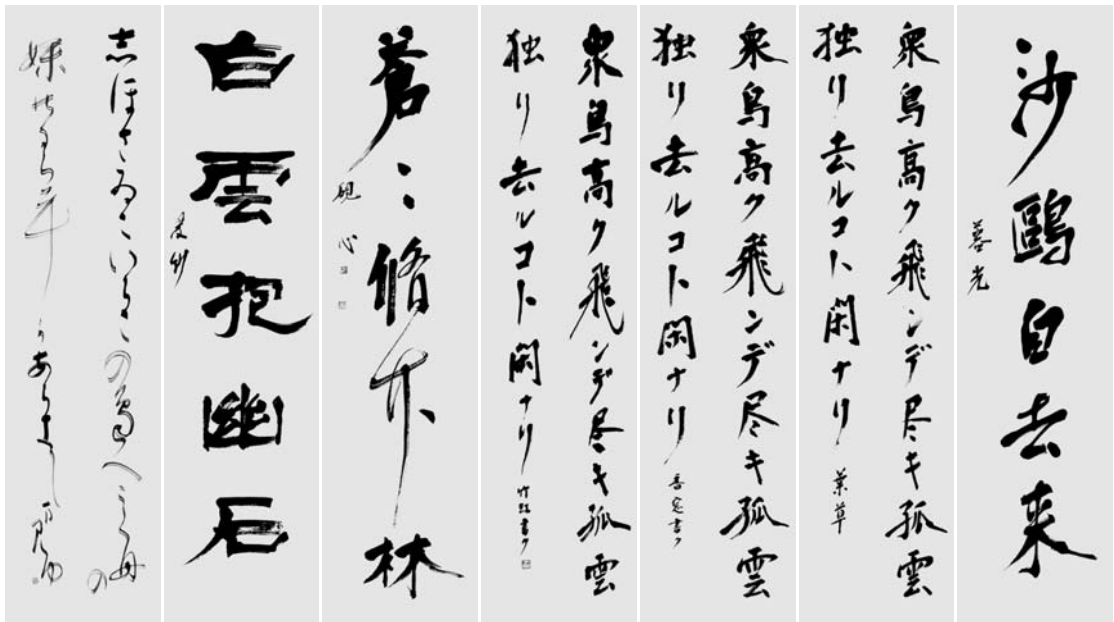 沙鷗自去来
暮光
衆鳥高ク飛ンデ尽キ孤雲
独リ去ルコト閑ナリ
葉草
衆鳥高ク飛ンデ尽キ孤雲
独リ去ルコト閑ナリ
書ク
衆鳥高ク飛ンデ尽キ孤雲
独リ去ルコト閑ナリ
竹路書ク
蒼〻脩竹林
硯心
白雲抱幽石
志ほさゐにいらこの島へ
妹